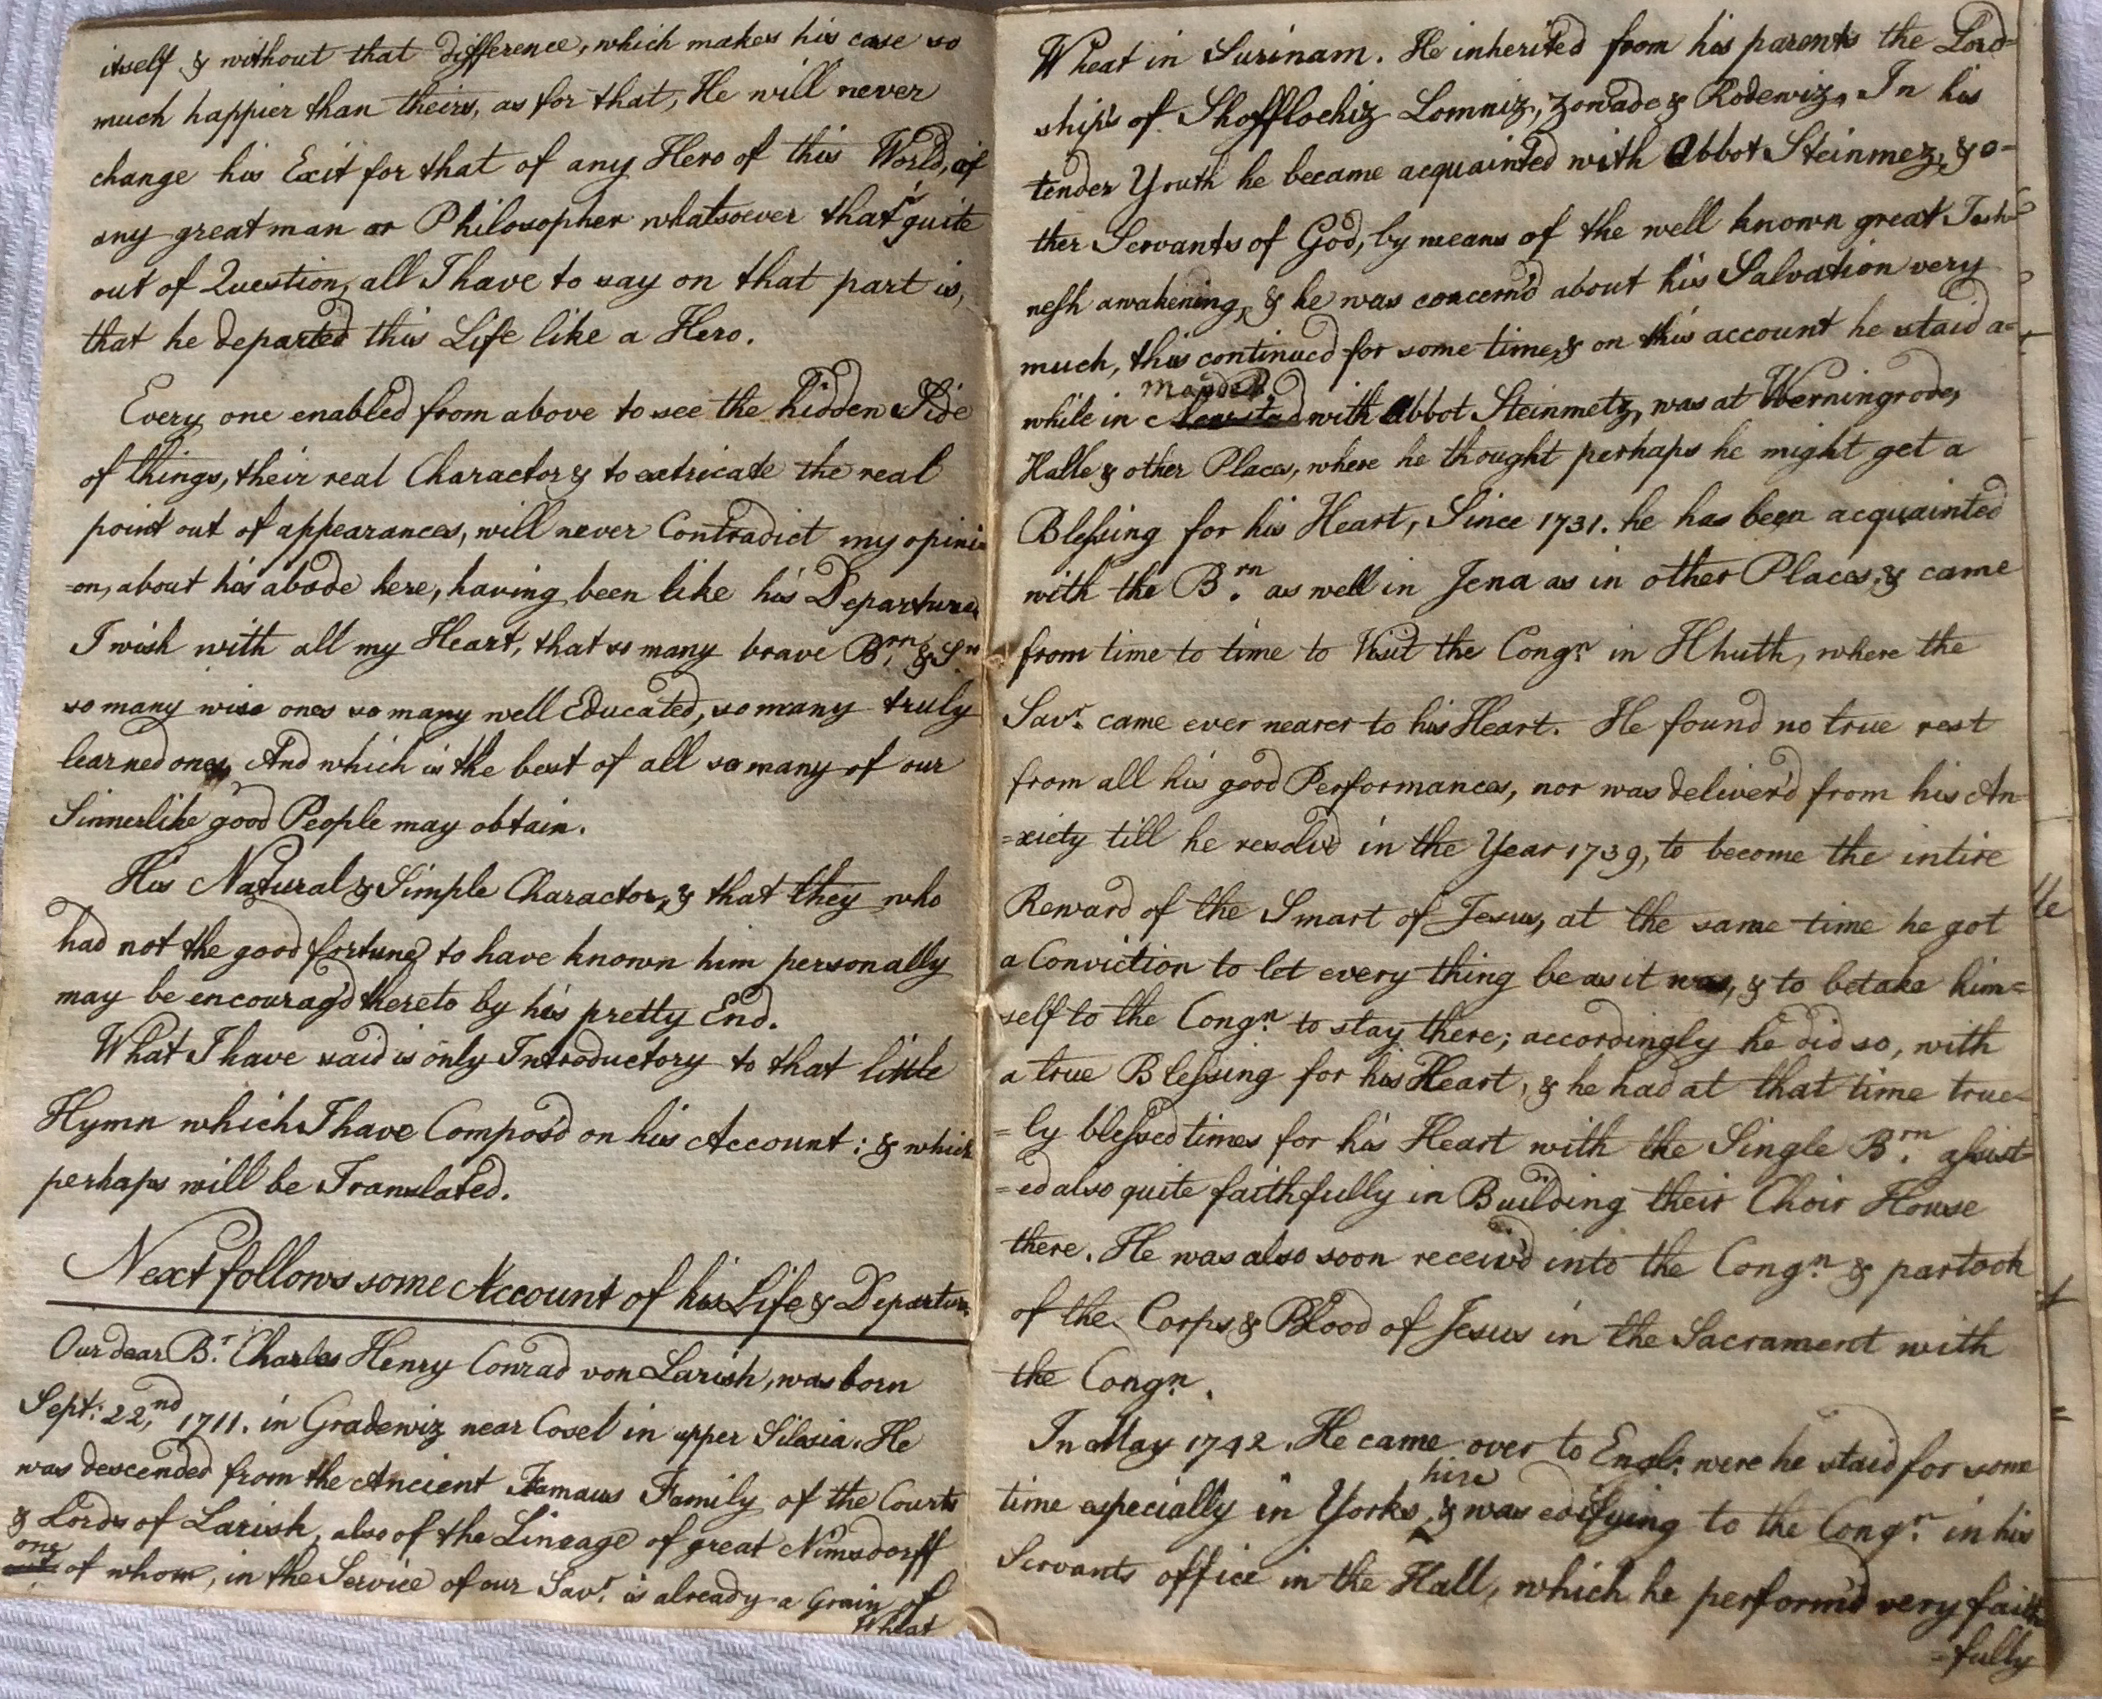 itself & without that difference, which makes his case so
much happier than theirs, as for that, He will never
change his Exit for that of any Hero of this World, of
any great man or Philosopher whatsoever that's quite
out of Question, all I have to say on that part is,
that he departed this Life like a Hero.
Every one enabled from above to see the hidden Side
of things, their real Charactor & to extricate the real
point out of appearances, will never Contradict my opini
=on, about his abode here, having been like his Departure,
I wish with all my Heart, that so many brave Brn. & Sn.
so many wise ones so many well Educated, so many truly
learned ones, And which is the best of all so many of our
Sinnerlike good People may obtain.
His Natural & Simple Charactor, & that they who
had not the good fortune to have known him personally
may be encourag'd thereto by his pretty End.
What I have said is only Introductory to that little
Hymn which I have Compos'd on his Account: & which
perhaps will be Translated.
Next follows some Account of his Life & Departure
Our dear Br. Charles Henry Conrad von Larish, was born
Sept: 22,nd 1711. in Gradewiz near Cosel in upper Silesia. He
was descended from the Ancient Famous Family of the Courts
& Lords of Larish, also of the Lineage of great Nimsdorff
one
of whom, in the Service of our Savr. is already a Grain of
Wheat
Wheat in Surinam. He inherited from his parents the Lord=
ships of Shofflochiz Lomniz, Zowade & Rodewiz, In his
tender Youth he became acquainted with Abbot Steinmez, & o=
ther Servants of God, by means of the well known great Tesh=
nesh awakening, & he was concern'd about his Salvation very
much, this continued for some time, & on this account he staid a=
while in with Abbot Steinmetz, was at Werningrode,
Halle & other Places, where he thought perhaps he might get a
Blessing for his Heart, Since 1731. he has been acquainted
with the Brn. as well in Jena as in other Places, & came
from time to time to Visit the Congn. in Hhuth, where the
Savr. came ever nearer to his Heart. He found no true rest
from all his good Performances, nor was deliver'd from his An
=xiety till he resolv'd in the Year 1739, to become the intire
Reward of the Smart of Jesus, at the same time he got
a Conviction to let every thing be as it was, & to betake him=
self to the Congn. to stay there; accordingly he did so, with
a true Blessing for his Heart, & he had at that time true=
=ly blessed times for his Heart with the Single Brn. assist=
=ed also quite faithfully in Building their Choir House
there. He was also soon receiv'd into the Congn. & partook
of the Corps & Blood of Jesus in the Sacrament with
the Congn.
In May 1742. He came over to Engl: were he staid for some
hire
time especially in Yorks, & was edifying to the Congn. in his
Servants office in the Hall, which he perform'd very faith
=fully